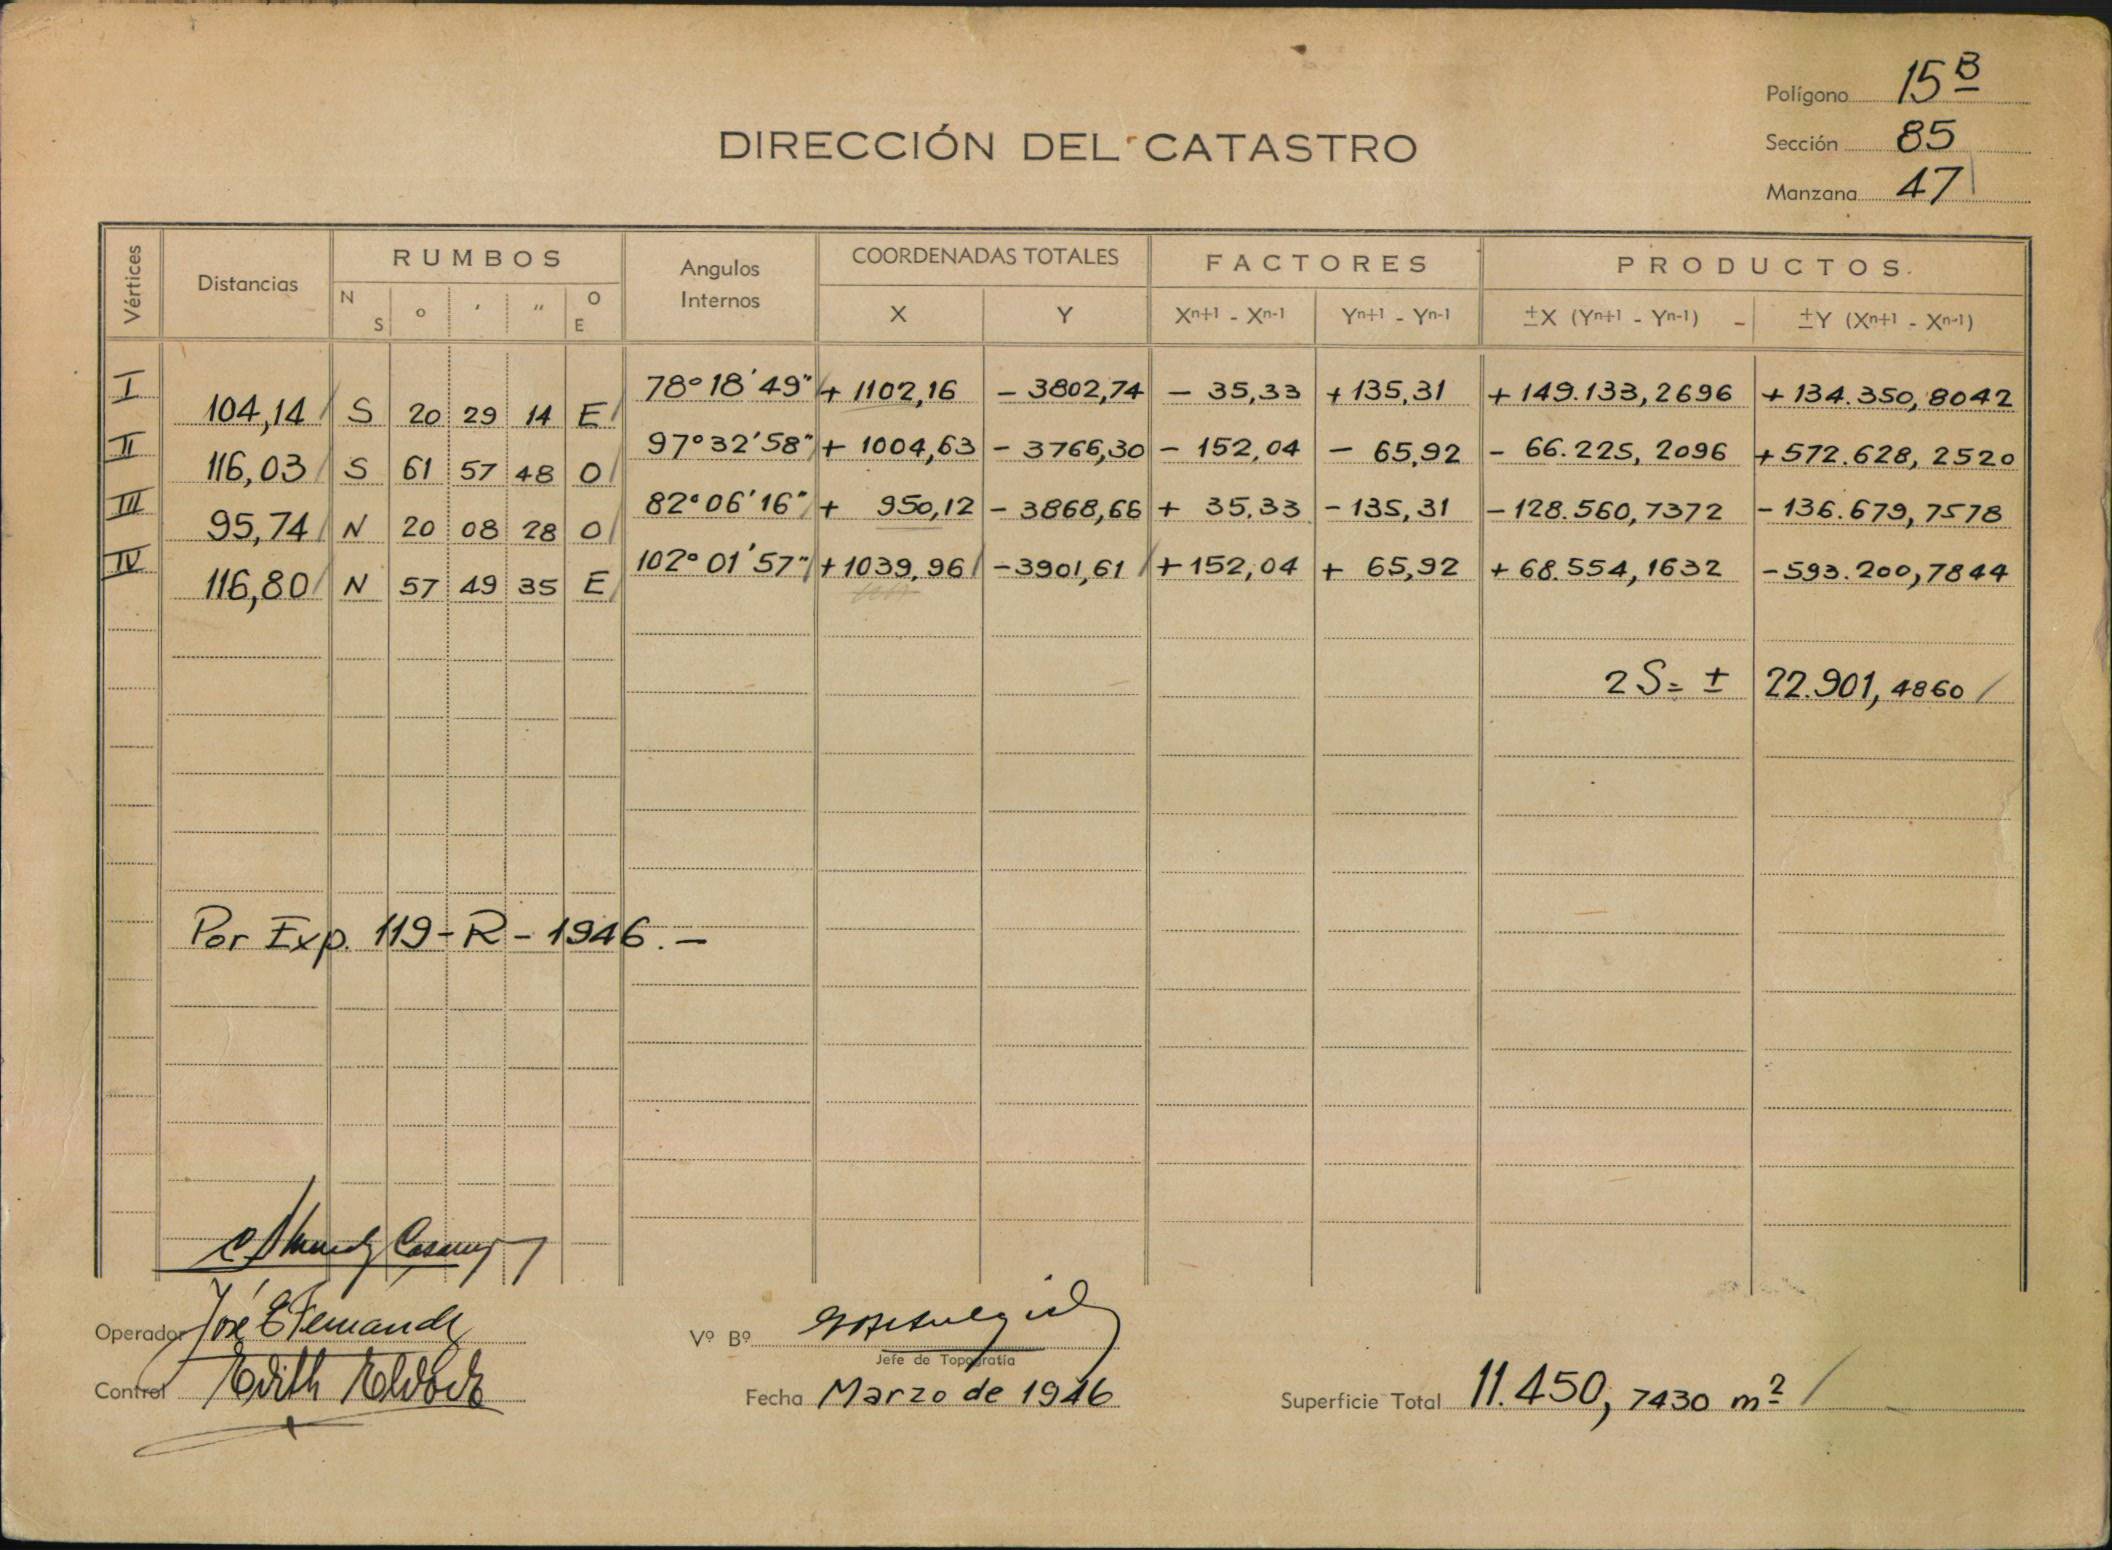 Polígono 15 B
DIRECCIÓN DEL CATASTRO
Sección 85
Manzana 47
Vértices
Distancias
RUMBOS
N S
o
'
"
O E
Angulos Internos
COORDENADAS TOTALES
X
Y
FACTORES
Xn+1 - Xn-1
Yn+1 - Yn-1
PRODUCTOS.
±X (Yn+1 - Yn-1) -
±Y (Xn+1 - Xn-1)
I 78° 18' 49" + 1102,16 - 3802,74 - 35,33 + 135,31 + 149.133,2696 + 134.350,8042
104,14 S 20 29 14 E
II 97° 32' 58" + 1004,63 - 3766,30 - 152,04 - 65,92 - 66.225,2096 + 572.628,2520
116,03 S 61 57 48 O
III 82° 06' 16" + 950,12 - 3868,66 + 35,33 - 135,31 - 128.560,7372 - 136.679,7578
95,74 N 20 08 28 O
IV 102° 01' 57" + 1039,96 - 3901,61 + 152,04 + 65,92 + 68.554,1632 - 593.200,7844
116,80 N 57 49 35 E
2S = ± 22.901,4860
Por Exp. 119-R-1946.-
Operador José E Fernández
Vº Bº
Jefe de Topografía
Control Edith
Fecha Marzo de 1946
Superficie Total 11.450,7430 m2